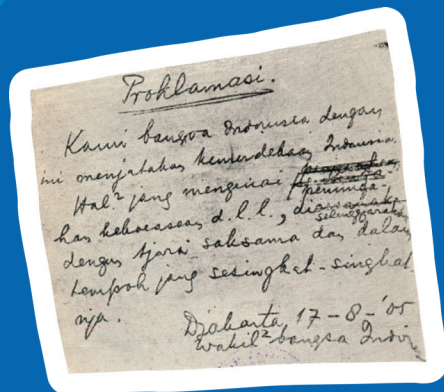 Proklamasi.
Kami bangsa Indonesia dengan
ini menjatakan kemerdekaan Indonesia.
Hal² jang mengenai
peminda-
han kekoeasaan d.l.l., di
selenggarakan
dengan tjara saksama dan dalam
tempoh jang sesingkat-singkat
nja.
Djakarta 17 - 8 - '05
Wakil² bangsa Indon